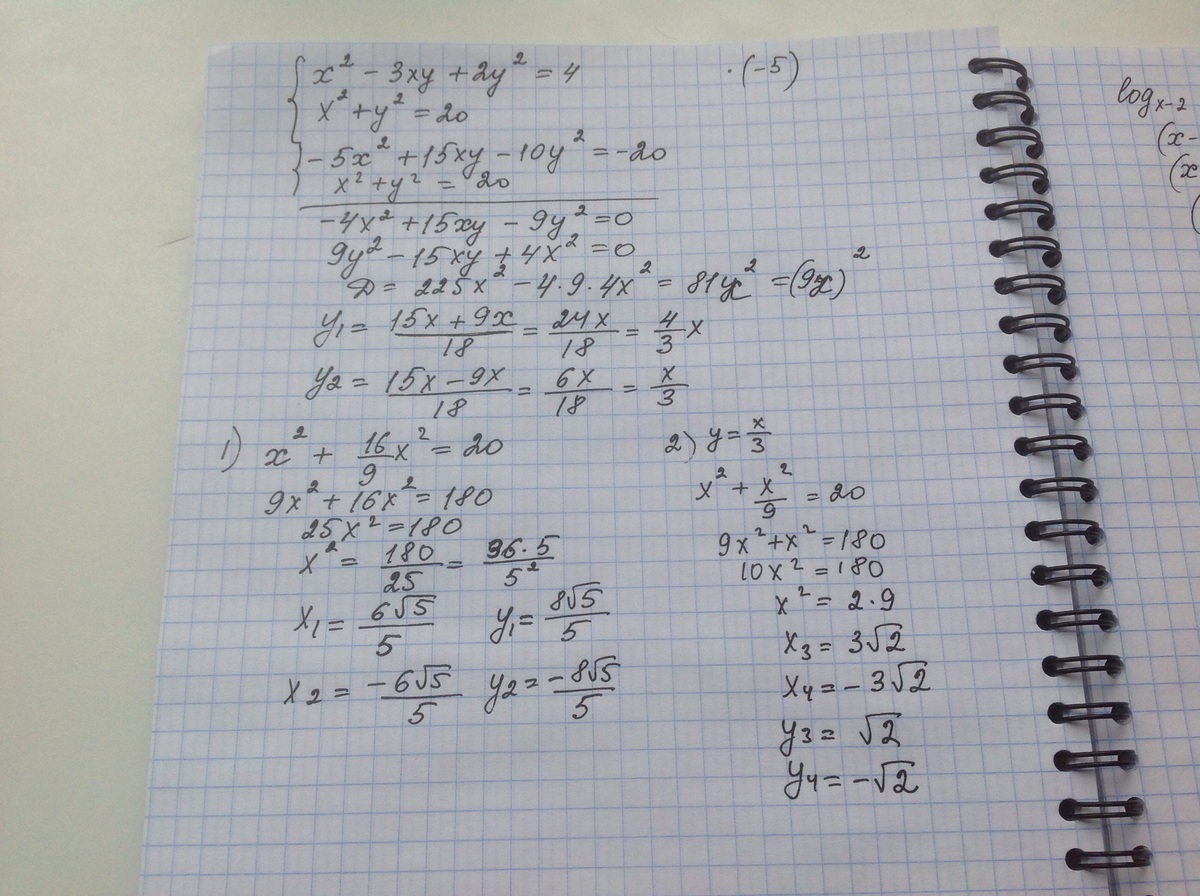 x² - 3xy + 2y² = 4 · (-5)
x² + y² = 20
-5x² + 15xy - 10y² = -20
x² + y² = 20
-4x² + 15xy - 9y² = 0
9y² - 15xy + 4x² = 0
D = 225x² - 4·9·4x² = 81x² = (9x)²
y₁ = (15x + 9x)/18 = 24x/18 = 4/3 x
y₂ = (15x - 9x)/18 = 6x/18 = x/3
1) x² + 16/9 x² = 20
9x² + 16x² = 180
25x² = 180
x² = 180/25 = 36·5/5²
x₁ = 6√5/5 y₁ = 8√5/5
x₂ = -6√5/5 y₂ = -8√5/5
2) y = x/3
x² + x²/9 = 20
9x² + x² = 180
10x² = 180
x² = 2·9
x₃ = 3√2
x₄ = -3√2
y₃ = √2
y₄ = -√2
log x-2
(x-
(x
(